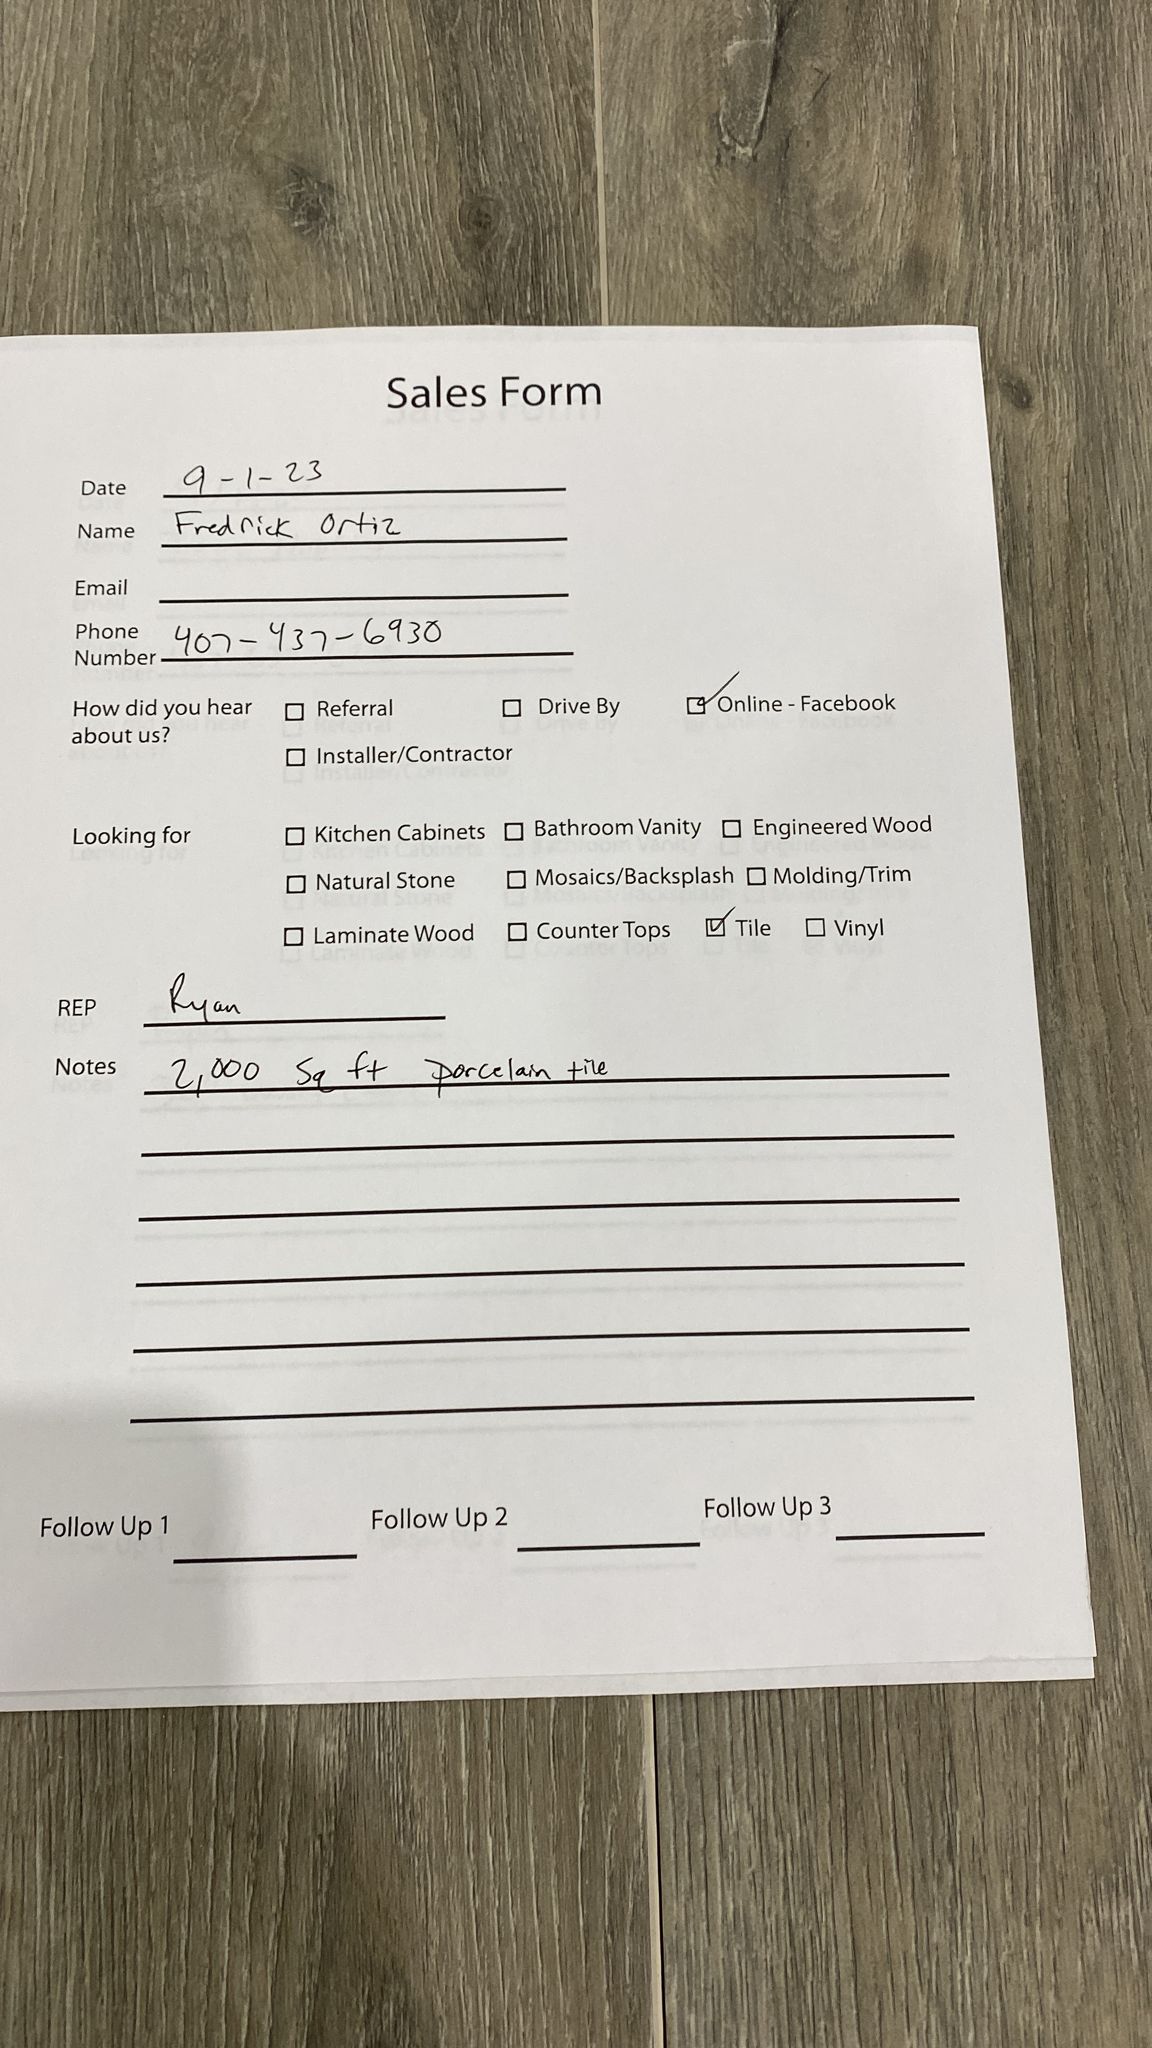 Sales Form
Date 9-1-23
Name Fredrick Ortiz
Email
Phone
Number 407-437-6930
How did you hear Referral Drive By Online - Facebook
about us?
Installer/Contractor
Looking for Kitchen Cabinets Bathroom Vanity Engineered Wood
Natural Stone Mosaics/Backsplash Molding/Trim
Laminate Wood Counter Tops Tile Vinyl
REP Ryan
Notes 2,000 Sq ft porcelain tile
Follow Up 1 Follow Up 2 Follow Up 3